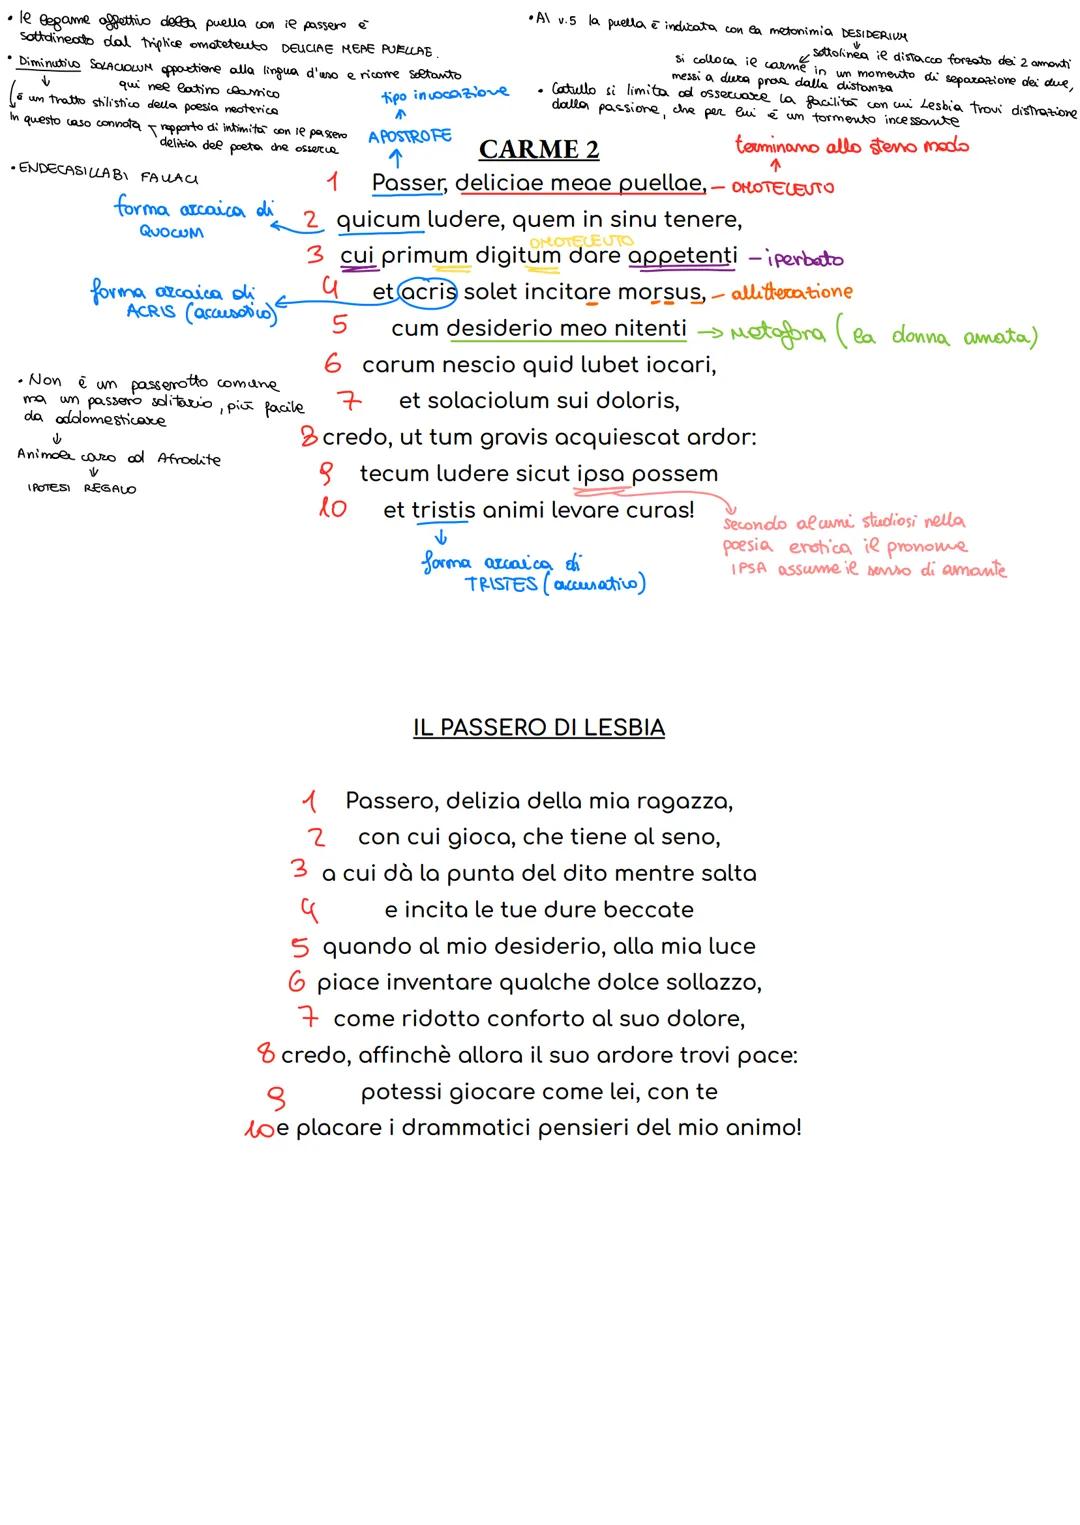 • Il legame affettivo della puella con il passero è
sottolineato dal triplice omoteleuto DELICIAE MEAE PUELLAE.
• Diminutivo SOLACIOLUM appartiene alla lingua d'uso e ricorre soltanto
qui nel latino classico
è un tratto stilistico della poesia neoterica
In questo caso connota rapporto di intimità con il passero
delizia del poeta che osserva
• ENDECASILLABI FALLACI
• Al v.5 la puella è indicata con la metonimia DESIDERIUM
sottolinea il distacco forzato dei 2 amanti
si colloca il carme in un momento di separazione dei due,
messi a dura prova dalla distanza
• Catullo si limita ad osservare la facilità con cui Lesbia trovi distrazione
dalla passione, che per lui è un tormento incessante
tipo invocazione
APOSTROFE
CARME 2
terminano allo stesso modo
1 Passer, deliciae meae puellae, – OMOTELEUTO
forma arcaica di
QUOCUM
2 quicum ludere, quem in sinu tenere,
OMOTELEUTO
3 cui primum digitum dare appetenti – iperbato
4 et acris solet incitare morsus, – allitterazione
forma arcaica di
ACRIS (accusativo)
5 cum desiderio meo nitenti → Metafora (la donna amata)
6 carum nescio quid lubet iocari,
7 et solaciolum sui doloris,
8 credo, ut tum gravis acquiescat ardor:
9 tecum ludere sicut ipsa possem
10 et tristis animi levare curas!
• Non è un passerotto comune
ma un passero solitario, più facile
da addomesticare
Animale caro ad Afrodite
IPOTESI REGALO
forma arcaica di
TRISTES (accusativo)
Secondo alcuni studiosi nella
poesia erotica il pronome
IPSA assume il senso di amante
IL PASSERO DI LESBIA
1 Passero, delizia della mia ragazza,
2 con cui gioca, che tiene al seno,
3 a cui dà la punta del dito mentre salta
4 e incita le tue dure beccate
5 quando al mio desiderio, alla mia luce
6 piace inventare qualche dolce sollazzo,
7 come ridotto conforto al suo dolore,
8 credo, affinchè allora il suo ardore trovi pace:
9 potessi giocare come lei, con te
10 e placare i drammatici pensieri del mio animo!